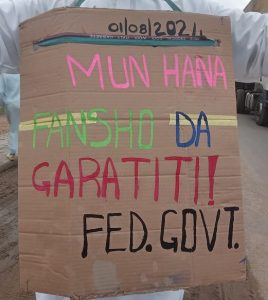 01/08/2024
MUN HANA
FANSHO DA
GARATITI!
FED. GOVT.